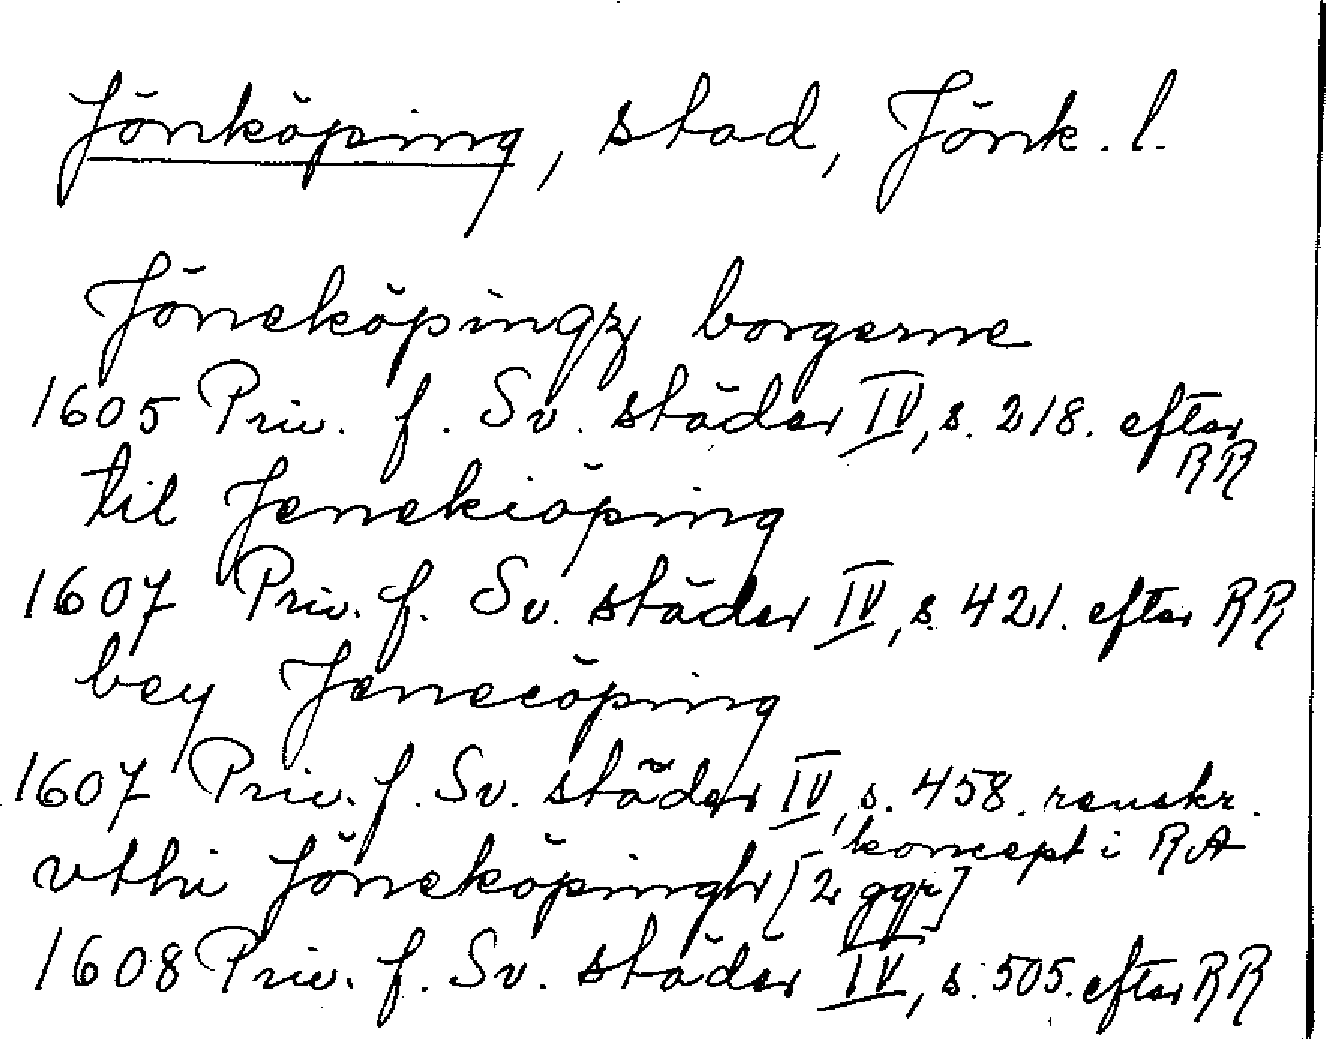 Jönköping, stad, Jönk. l.
Jöneköpingz borgerne
1605 Priv. f. Sv. städer IV, s. 218. efter RR
til Jenekiöping
1607 Priv. f. Sv. städer IV, s. 421. efter RR
bey Jenecöping
1607 Priv. f. Sv. städer IV, s. 458. renskr. koncept i RA
vthi Jöneköpingh [2 ggr]
1608 Priv. f. Sv. städer IV, s. 505. efter RR